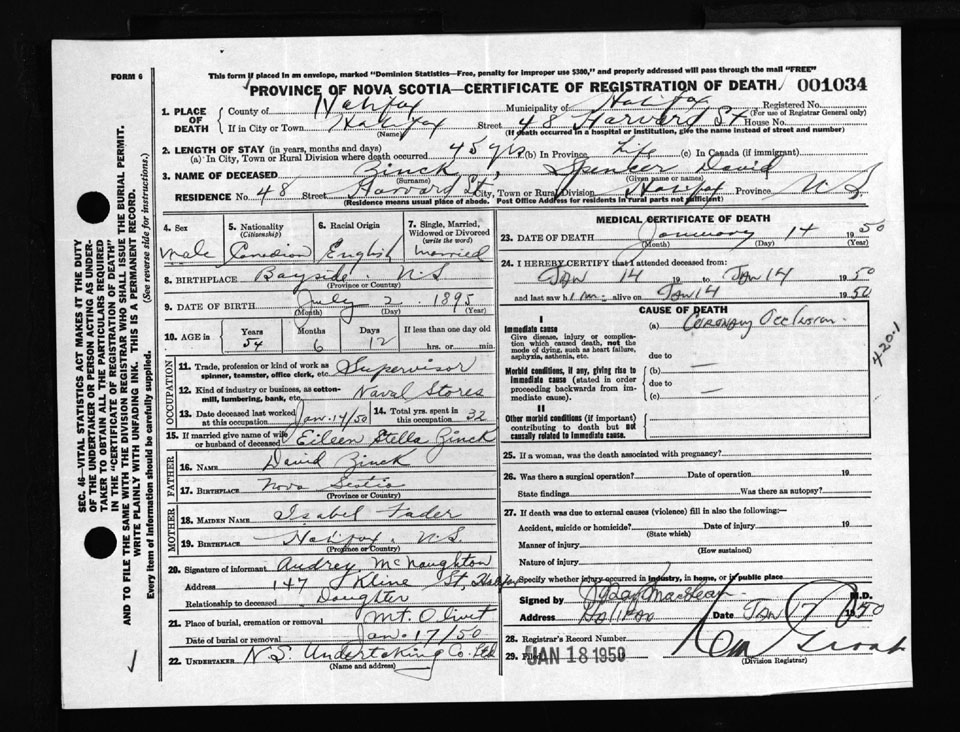 FORM 6
This form if placed in an envelope, marked "Dominion Statistics—Free, penalty for improper use $300," and properly addressed will pass through the mail "FREE"
PROVINCE OF NOVA SCOTIA—CERTIFICATE OF REGISTRATION OF DEATH 001034
1. PLACE OF DEATH
County of Halifax Municipality of Halifax Registered No.
(For use of Registrar General only)
If in City or Town Halifax Street 48 Harvard St House No.
(Name) (If death occurred in a hospital or institution, give the name instead of street and number)
2. LENGTH OF STAY (in years, months and days)
(a) In City, Town or Rural Division where death occurred 45 yrs (b) In Province Life (c) In Canada (if immigrant)
3. NAME OF DECEASED Zinck, Spencer David
(Surname) (Given name or names)
RESIDENCE No. 48 Street Harvard St, City, Town or Rural Division Halifax Province N S
(Residence means usual place of abode. Post Office Address for residents in rural parts not sufficient)
4. Sex
male
5. Nationality
(Citizenship)
Canadian
6. Racial Origin
English
7. Single, Married, Widowed or Divorced
(write the word)
married
8. BIRTHPLACE Bayside. N.S
(Province or Country)
9. DATE OF BIRTH July 2 1895
(Month) (Day) (Year)
10. AGE in Years Months Days If less than one day
54 6 12 hrs. or min.
OCCUPATION
11. Trade, profession or kind of work as spinner, teamster, office clerk, etc. Supervisor
12. Kind of industry or business, as cotton-mill, lumbering, bank, etc. Naval Stores
13. Date deceased last worked at this occupation Jan. 14/50
14. Total yrs. spent in this occupation 32
15. If married give name of wife or husband of deceased Eileen Stella Zinck
FATHER
16. NAME David Zinck
17. BIRTHPLACE Nova Scotia
(Province or Country)
MOTHER
18. MAIDEN NAME Isabel Fader
19. BIRTHPLACE Halifax. N.S.
(Province or Country)
20. Signature of informant Audrey McNaughton
Address 147 Kline St, Halifax
Relationship to deceased Daughter
21. Place of burial, cremation or removal Mt. Olivet
Date of burial or removal Jan. 17/50
22. UNDERTAKER N.S. Undertaking Co. Ltd
(Name and address)
MEDICAL CERTIFICATE OF DEATH
23. DATE OF DEATH January 14 1950
(Month) (Day) (Year)
24. I HEREBY CERTIFY that I attended deceased from:
JAN 14 19 to JAN 14 1950
and last saw him alive on JAN 14 1950
CAUSE OF DEATH
I
Immediate cause (a) Coronary Occlusion
Give disease, injury or complication which caused death, not the mode of dying, such as heart failure, asphyxia, asthenia, etc.
due to
Morbid conditions, if any, giving rise to immediate cause (stated in order proceeding backwards from immediate cause).
(b)
due to
(c)
II
Other morbid conditions (if important) contributing to death but not causally related to immediate cause.
420.1
25. If a woman, was the death associated with pregnancy?
26. Was there a surgical operation? Date of operation 19
State findings Was there an autopsy?
27. If death was due to external causes (violence) fill in also the following:—
Accident, suicide or homicide? Date of injury 19
(State which)
Manner of injury
(How sustained)
Nature of injury
Specify whether injury occurred in industry, in home, or in public place
Signed by MacLean M.D.
Address Halifax Date JAN 17 1950
28. Registrar's Record Number
29. Filed JAN 18 1950
(Division Registrar)
SEC. 46—VITAL STATISTICS ACT MAKES IT THE DUTY OF THE UNDERTAKER OR PERSON ACTING AS UNDERTAKER TO OBTAIN ALL THE PARTICULARS REQUIRED IN THE "CERTIFICATE OF REGISTRATION OF DEATH" AND TO FILE THE SAME WITH THE DIVISION REGISTRAR WHO SHALL ISSUE THE BURIAL PERMIT.
WRITE PLAINLY WITH UNFADING INK. THIS IS A PERMANENT RECORD.
Every item of information should be carefully supplied. (See reverse side for instructions.)